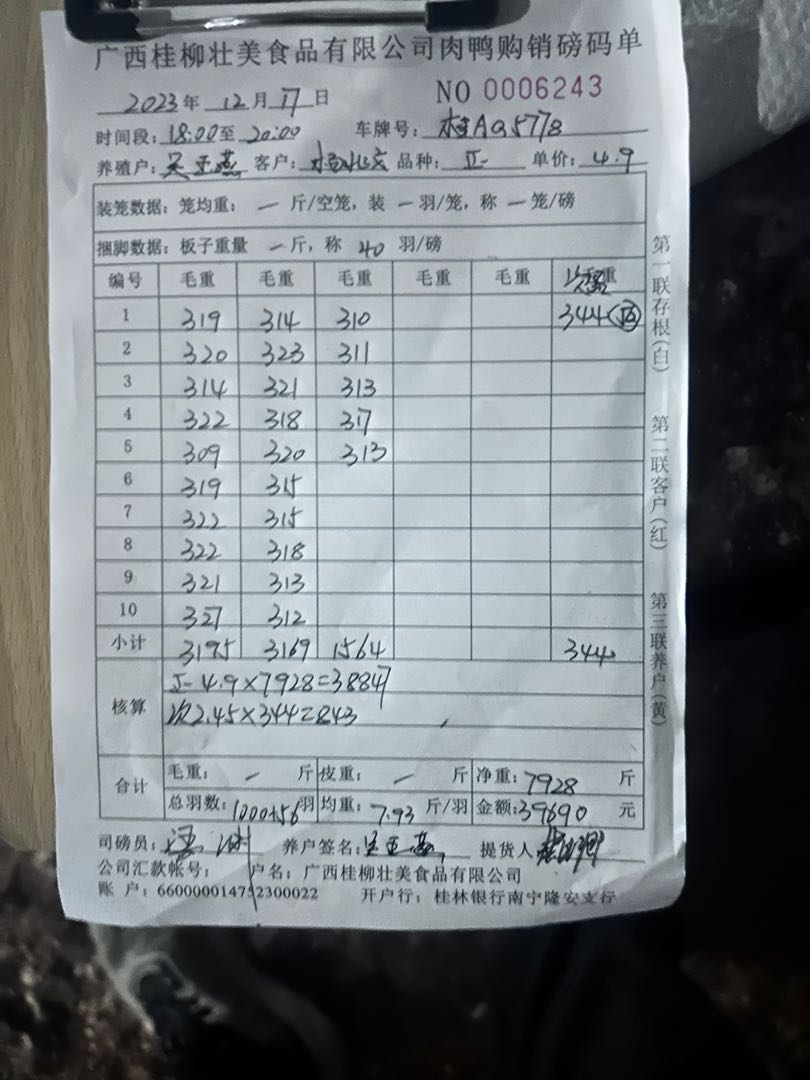 广西桂柳壮美食品有限公司肉鸭购销磅码单
2023年 12月 17日 NO 0006243
时间段: 18:00至 20:00 车牌号: 桂AQ5778
养殖户: 吴亚燕 客户: 品种: 正 单价: 4.9
装笼数据: 笼均重: 一 斤/空笼, 装 一 羽/笼, 称 一 笼/磅
捆脚数据: 板子重量 一 斤, 称 40 羽/磅
编号 毛重 毛重 毛重 毛重 毛重 毛重
1 319 314 310 344
2 320 323 311
3 314 321 313
4 322 318 317
5 309 320 313
6 319 315
7 322 315
8 322 318
9 321 313
10 327 312
小计 3195 3169 1564 344
核算 正 4.9×7928=38847
次2.45×344=843
合计 毛重: 一 斤 皮重: 一 斤 净重: 7928 斤
总羽数: 1000+56 羽 均重: 7.93 斤/羽 金额: 39690 元
司磅员: 养户签名: 吴亚燕 提货人
公司汇款帐号: 户名: 广西桂柳壮美食品有限公司
账 户: 660000014752300022 开户行: 桂林银行南宁隆安支行
第一联存根(白)
第二联客户(红)
第三联养户(黄)